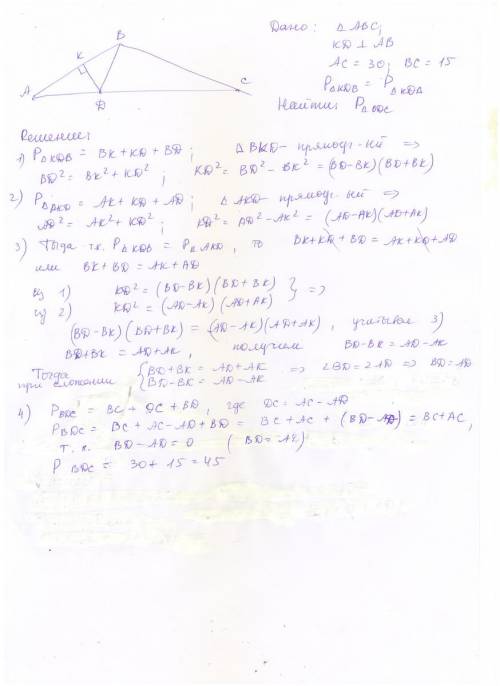 Дано: △ABC,
KD ⊥ AB
AC = 30; BC = 15
P△KDB = P△KDA
Найти: P△BDC
B
K
A
D
C
Решение:
1) P△KDB = BK + KD + BD; △BKD – прямоуг-ный ⇒
BD² = BK² + KD²; KD² = BD² - BK² = (BD-BK)(BD+BK)
2) P△AKD = AK + KD + AD; △AKD – прямоуг-ный ⇒
AD² = AK² + KD²; KD² = AD² - AK² = (AD-AK)(AD+AK)
3) Тогда т.к. P△KDB = P△AKD, то BK+KD+BD = AK+KD+AD
или BK + BD = AK + AD
из 1) KD² = (BD-BK)(BD+BK) } ⇒
из 2) KD² = (AD-AK)(AD+AK)
(BD-BK)(BD+BK) = (AD-AK)(AD+AK), учитывая 3)
BD+BK = AD+AK, получим BD-BK = AD-AK
Тогда при сложении { BD+BK = AD+AK ⇒ 2BD = 2AD ⇒ BD = AD
BD-BK = AD-AK
4) PBDC = BC + DC + BD, где DC = AC - AD
PBDC = BC + AC - AD + BD = BC + AC + (BD - AD) = BC + AC,
т.к. BD - AD = 0 (BD = AD)
P BDC = 30 + 15 = 45